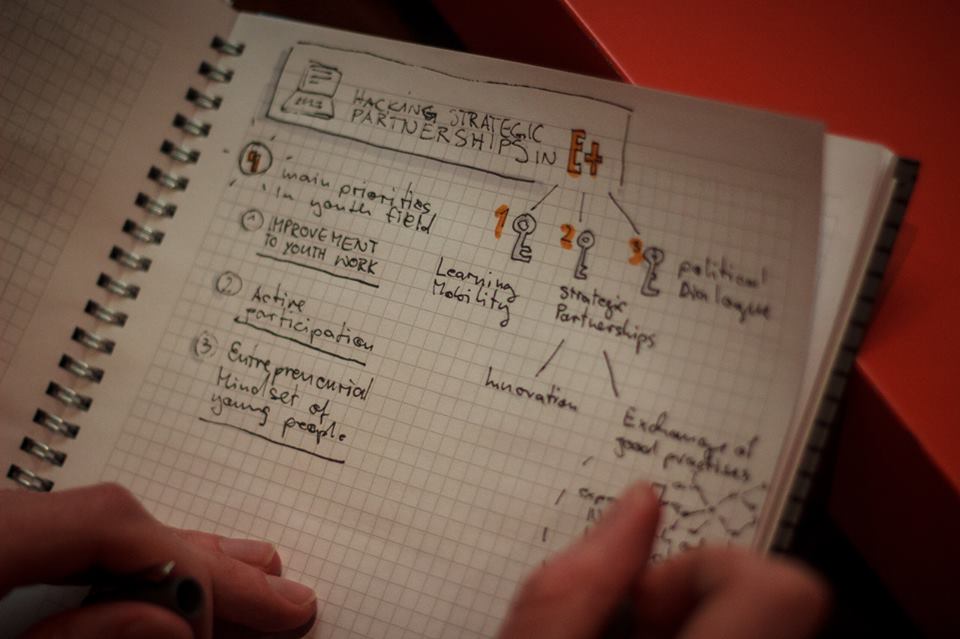 HACKING STRATEGIC
PARTNERSHIPS IN E+
4 main priorities
in youth field
1 IMPROVEMENT
TO YOUTH WORK
2 Active
participation
3 Entrepreneurial
Mindset of
young people
1
Learning
Mobility
2
Strategic
Partnerships
3
political
Dialogue
Innovation
Exchange of
good practises